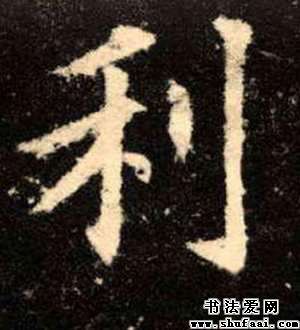 利
书法爱网
www.shufaai.com